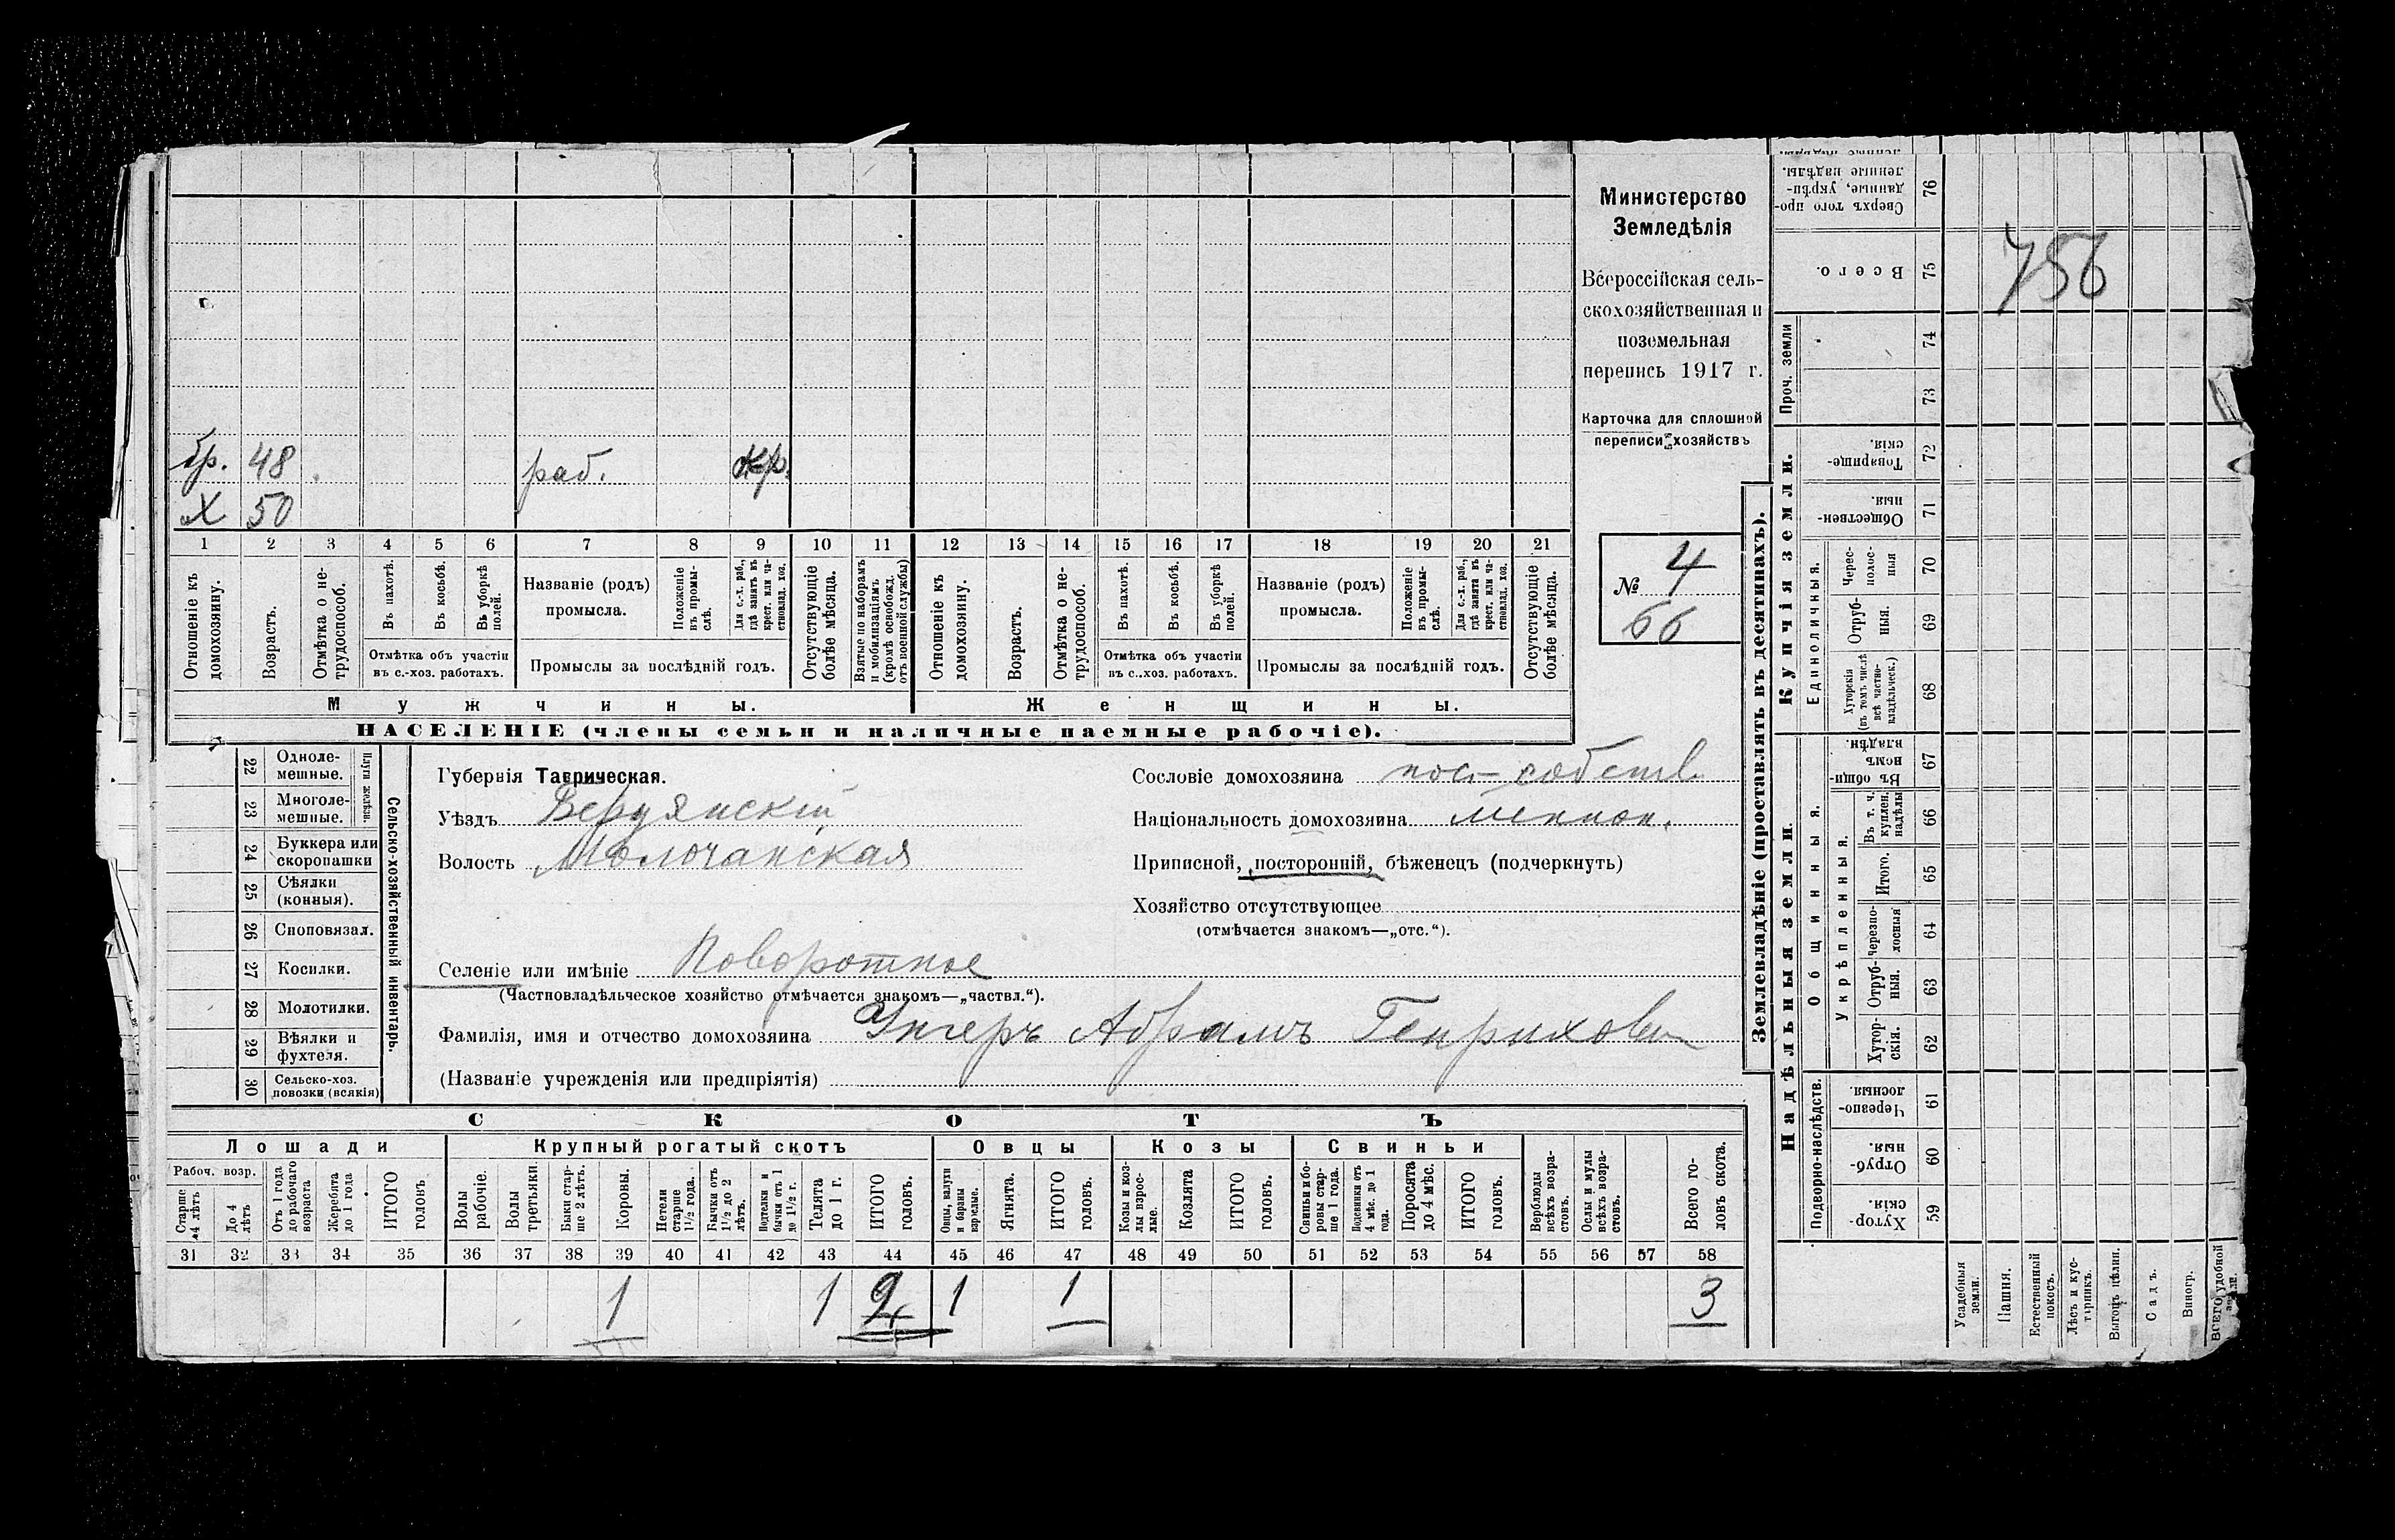 Министерство
Земледѣлія
Всероссійская сель-
скохозяйственная и
поземельная
перепись 1917 г.
Карточка для сплошной
переписи хозяйствъ
№ 4
66
756
бр. 48 раб.
Х 50
1 2 3 4 5 6 7 8 9 10 11 12 13 14 15 16 17 18 19 20 21
Отношеніе къ домохозяину.
Возрастъ.
Отмѣтка о не-трудоспособ.
Въ пахотѣ.
Въ косьбѣ.
Въ уборкѣ полей.
Отмѣтка объ участіи
въ с.-хоз. работахъ.
Названіе (родъ)
промысла.
Положеніе въ промы-слѣ.
Для с.-х. раб., гдѣ занятъ въ крест. или ча-стновлад. хоз.
Промыслы за послѣдній годъ.
Отсутствующіе болѣе мѣсяца.
Взятые по наборамъ и мобилизаціямъ (кромѣ освобожд. отъ военной службы)
Отношеніе къ домохозяину.
Возрастъ.
Отмѣтка о не-трудоспособ.
Въ пахотѣ.
Въ косьбѣ.
Въ уборкѣ полей.
Отмѣтка объ участіи
въ с.-хоз. работахъ.
Названіе (родъ)
промысла.
Положеніе въ промы-слѣ.
Для с.-х. раб., гдѣ занята въ крест. или ча-стновлад. хоз.
Промыслы за послѣдній годъ.
Отсутствующіе болѣе мѣсяца.
Мужчины.
Женщины.
НАСЕЛЕНІЕ (члены семьи и наличные наемные рабочіе).
22 Одноле-мешные.
23 Многоле-мешные.
Плуги желѣзн.
24 Буккера или скоропашки
25 Сѣялки (конныя).
26 Сноповязал.
27 Косилки.
28 Молотилки.
29 Вѣялки и фухтеля.
30 Сельско-хоз. повозки (всякія)
Сельско-хозяйственный инвентарь.
Губернія Таврическая.
Уѣздъ Бердянскій
Волость Молочанская
Сословіе домохозяина пос-собств
Національность домохозяина меннон.
Приписной, посторонній, бѣженецъ (подчеркнуть)
Хозяйство отсутствующее
(отмѣчается знакомъ—„отс.“).
Селеніе или имѣніе Поворотное
(Частновладѣльческое хозяйство отмѣчается знакомъ—„частвл.“).
Фамилія, имя и отчество домохозяина Унгеръ Абрамъ Генрихови
(Названіе учрежденія или предпріятія)
СКОТЪ
Лошади Крупный рогатый скотъ Овцы Козы Свиньи
Рабоч. возр.
Старше 4 лѣтъ
До 4 лѣтъ
Отъ 1 года до рабочаго возраста
Жеребята до 1 года
ИТОГО головъ
Волы рабочіе.
Волы третьяки.
Быки стар-ше 2 лѣтъ.
Коровы.
Нетели старше 1½ года.
Бычки отъ 1½ до 2 лѣтъ.
Подтелки и бычки отъ 1 до 1½ г.
Телята до 1 г.
ИТОГО головъ.
Овцы, валухи и бараны взрослые.
Ягнята.
ИТОГО головъ.
Козы и коз-лы взрос-лые.
Козлята
ИТОГО головъ.
Свиньи и бо-ровы стар-ше 1 года.
Подсвинки отъ 4 мѣс. до 1 года.
Поросята до 4 мѣс.
ИТОГО головъ.
Верблюды всѣхъ возра-стовъ.
Ослы и мулы всѣхъ возра-стовъ.
Всего го-ловъ скота.
31 32 33 34 35 36 37 38 39 40 41 42 43 44 45 46 47 48 49 50 51 52 53 54 55 56 57 58
1 1 2 1 1 3
Землевладѣніе (проставлять въ десятинахъ).
Надѣльныя земли.
Купчія земли.
Проч. земли
Подворно-наслѣдств.
Общинныя.
Укрѣпленныя.
Единоличныя.
Хутор-скія. 59
Отруб-ныя. 60
Черезпо-лосныя. 61
Хутор-скія. 62
Отруб-ныя. 63
Черезпо-лосныя 64
Итого. 65
Въ т. ч. куплен. надѣлы 66
Въ общин-номъ владѣн. 67
Хуторскія (въ томъ числѣ всѣ частно-владѣльческ.) 68
Отруб-ныя. 69
Черес-полос-ныя 70
Обществен-ныя. 71
Товарище-скія. 72
73
74
Всего. 75
Сверхъ того про-данные, укрѣп-ленные надѣлы. 76
Усадебныя земли.
Пашня.
Естественный покосъ.
Лѣсъ и кус-тарникъ.
Выгонъ цѣлин.
Садъ.
Виногр.
ВСЕГО удобной